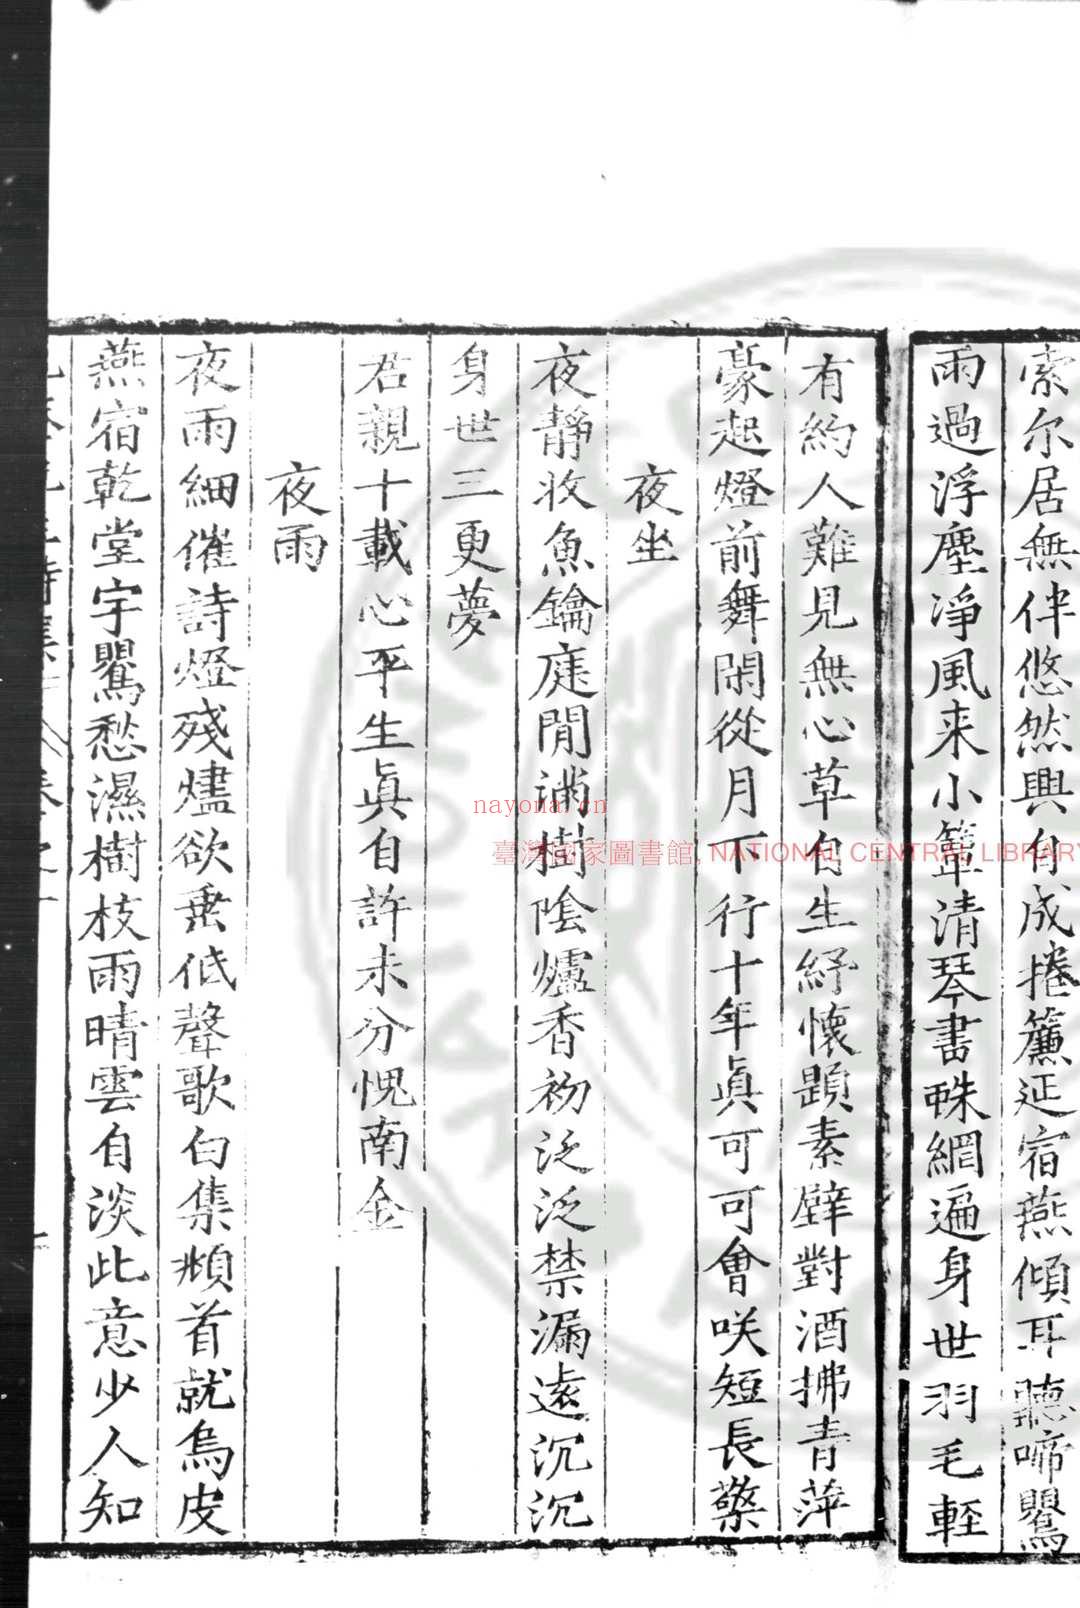 索尔居無伴悠然興自成捲簾延宿燕傾耳聽啼鸎
雨過浮塵淨風来小簟清琴書蛛網遍身世羽毛輕
有約人難見無心草自生紓懷題素壁對酒拂青萍
豪起燈前舞閑從月下行十年真可可會咲短長檠
夜坐
夜靜收魚鑰庭閒滿樹陰爐香初泛泛禁漏遠沉沉
身世三更夢
君親十載心平生眞自許未分愧南金
夜雨
夜雨細催詩燈殘燼欲垂低聲歌白集頻首就烏皮
燕宿乾堂宇鸎愁濕樹枝雨晴雲自淡此意少人知
nayona.cn
臺灣國家圖書館, NATIONAL CENTRAL LIBRARY